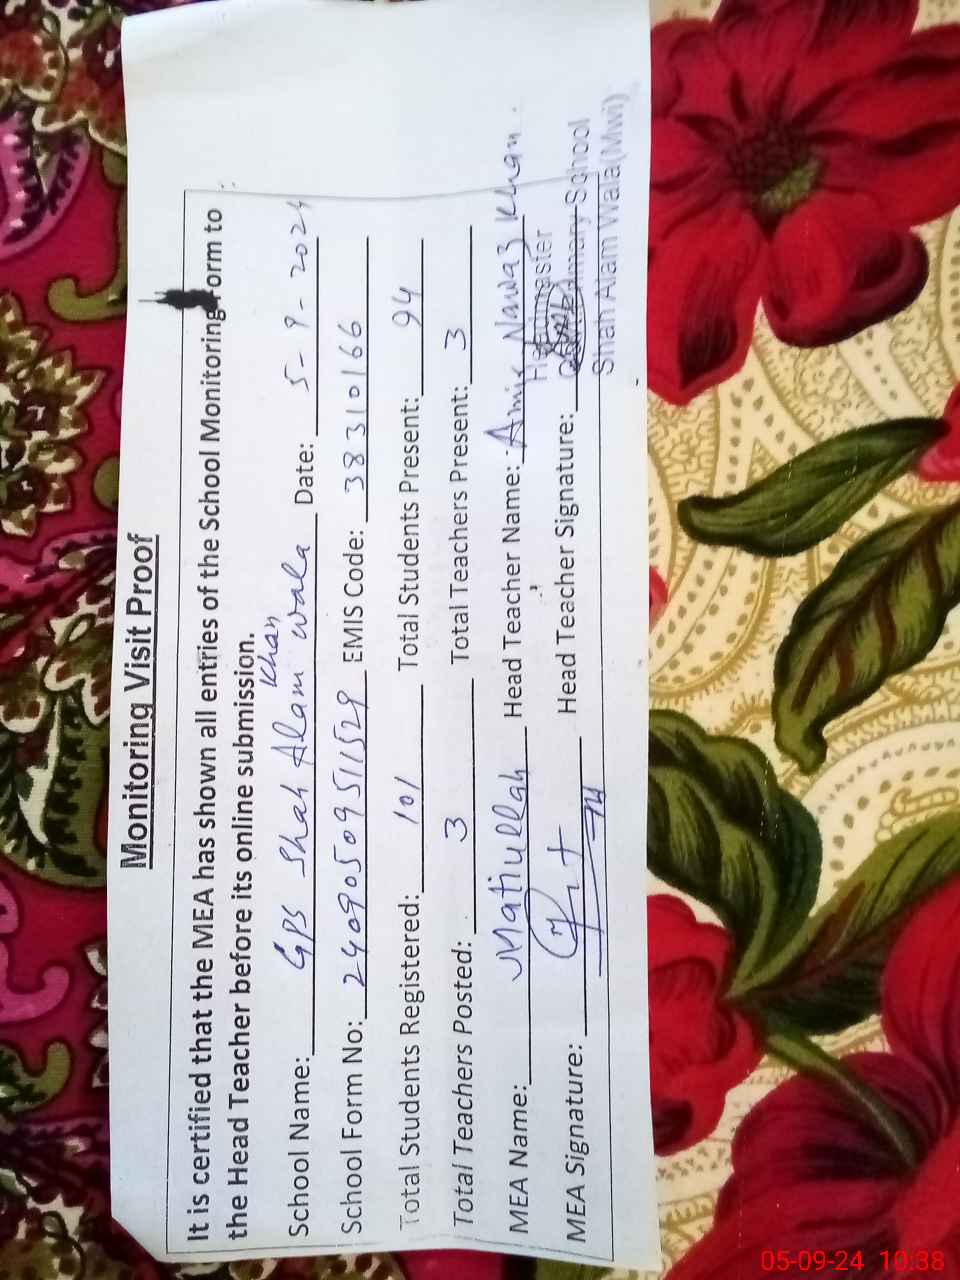 Monitoring Visit Proof
It is certified that the MEA has shown all entries of the School Monitoring Form to
the Head Teacher before its online submission.
School Name: GPS Shah Alam Khan wala Date: 5-9-2024
School Form No: 24090509511529 EMIS Code: 38310166
Total Students Registered: 101 Total Students Present: 94
Total Teachers Posted: 3 Total Teachers Present: 3
MEA Name: Matiullah Head Teacher Name: Amir Nawaz Khan.
MEA Signature: Head Teacher Signature:
Headmaster
Primary School
Shah Alam Wala (Mwi)
05-09-24 10:38